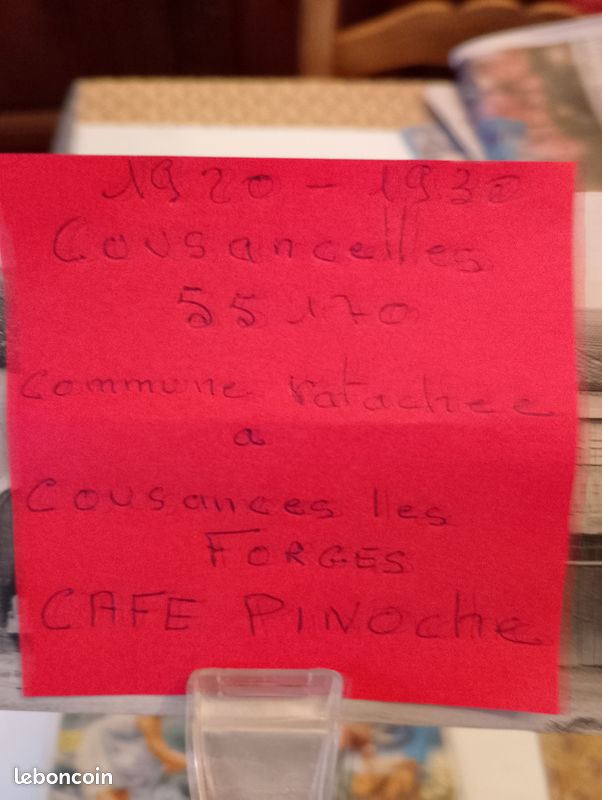 1920 - 1930
Cousancelles
55170
Commune ratachee
a
Cousances lles
FORGES
CAFE PINOche
leboncoin